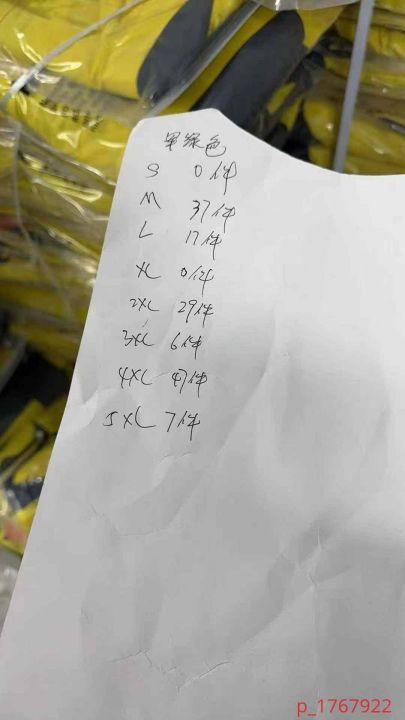 军绿色
S 0件
M 37件
L 17件
XL 0件
2XL 29件
3XL 6件
4XL 47件
5XL 7件
p_1767922